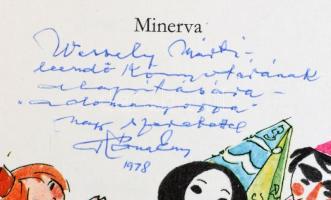 Minerva
Wessely Márti-
leendő Könyvtárának
alapítására -
"adományozva"
nagy szeretettel
1978